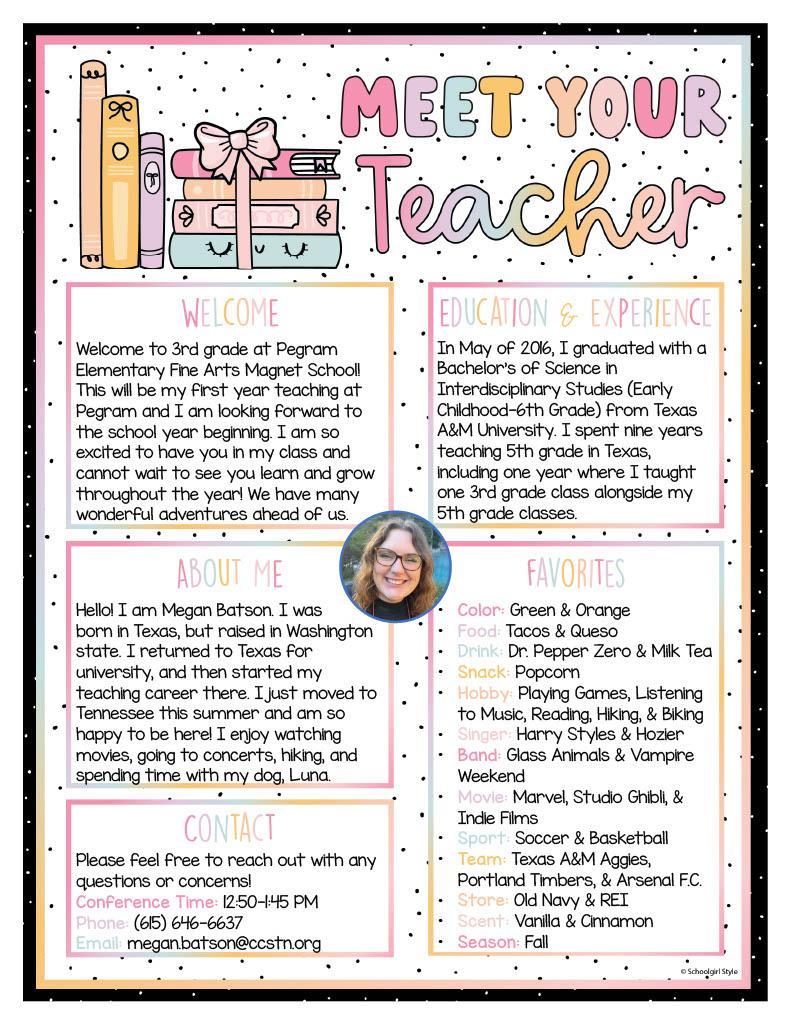 MEET YOUR
Teacher
WELCOME
Welcome to 3rd grade at Pegram
Elementary Fine Arts Magnet School!
This will be my first year teaching at
Pegram and I am looking forward to
the school year beginning. I am so
excited to have you in my class and
cannot wait to see you learn and grow
throughout the year! We have many
wonderful adventures ahead of us.
EDUCATION & EXPERIENCE
In May of 2016, I graduated with a
Bachelor's of Science in
Interdisciplinary Studies (Early
Childhood-6th Grade) from Texas
A&M University. I spent nine years
teaching 5th grade in Texas,
including one year where I taught
one 3rd grade class alongside my
5th grade classes.
ABOUT ME
Hello! I am Megan Batson. I was
born in Texas, but raised in Washington
state. I returned to Texas for
university, and then started my
teaching career there. I just moved to
Tennessee this summer and am so
happy to be here! I enjoy watching
movies, going to concerts, hiking, and
spending time with my dog, Luna.
FAVORITES
• Color: Green & Orange
• Food: Tacos & Queso
• Drink: Dr. Pepper Zero & Milk Tea
• Snack: Popcorn
• Hobby: Playing Games, Listening
to Music, Reading, Hiking, & Biking
• Singer: Harry Styles & Hozier
• Band: Glass Animals & Vampire
Weekend
• Movie: Marvel, Studio Ghibli, &
Indie Films
• Sport: Soccer & Basketball
• Team: Texas A&M Aggies,
Portland Timbers, & Arsenal F.C.
• Store: Old Navy & REI
• Scent: Vanilla & Cinnamon
• Season: Fall
CONTACT
Please feel free to reach out with any
questions or concerns!
Conference Time: 12:50-1:45 PM
Phone: (615) 646-6637
Email: megan.batson@ccstn.org
© Schoolgirl Style